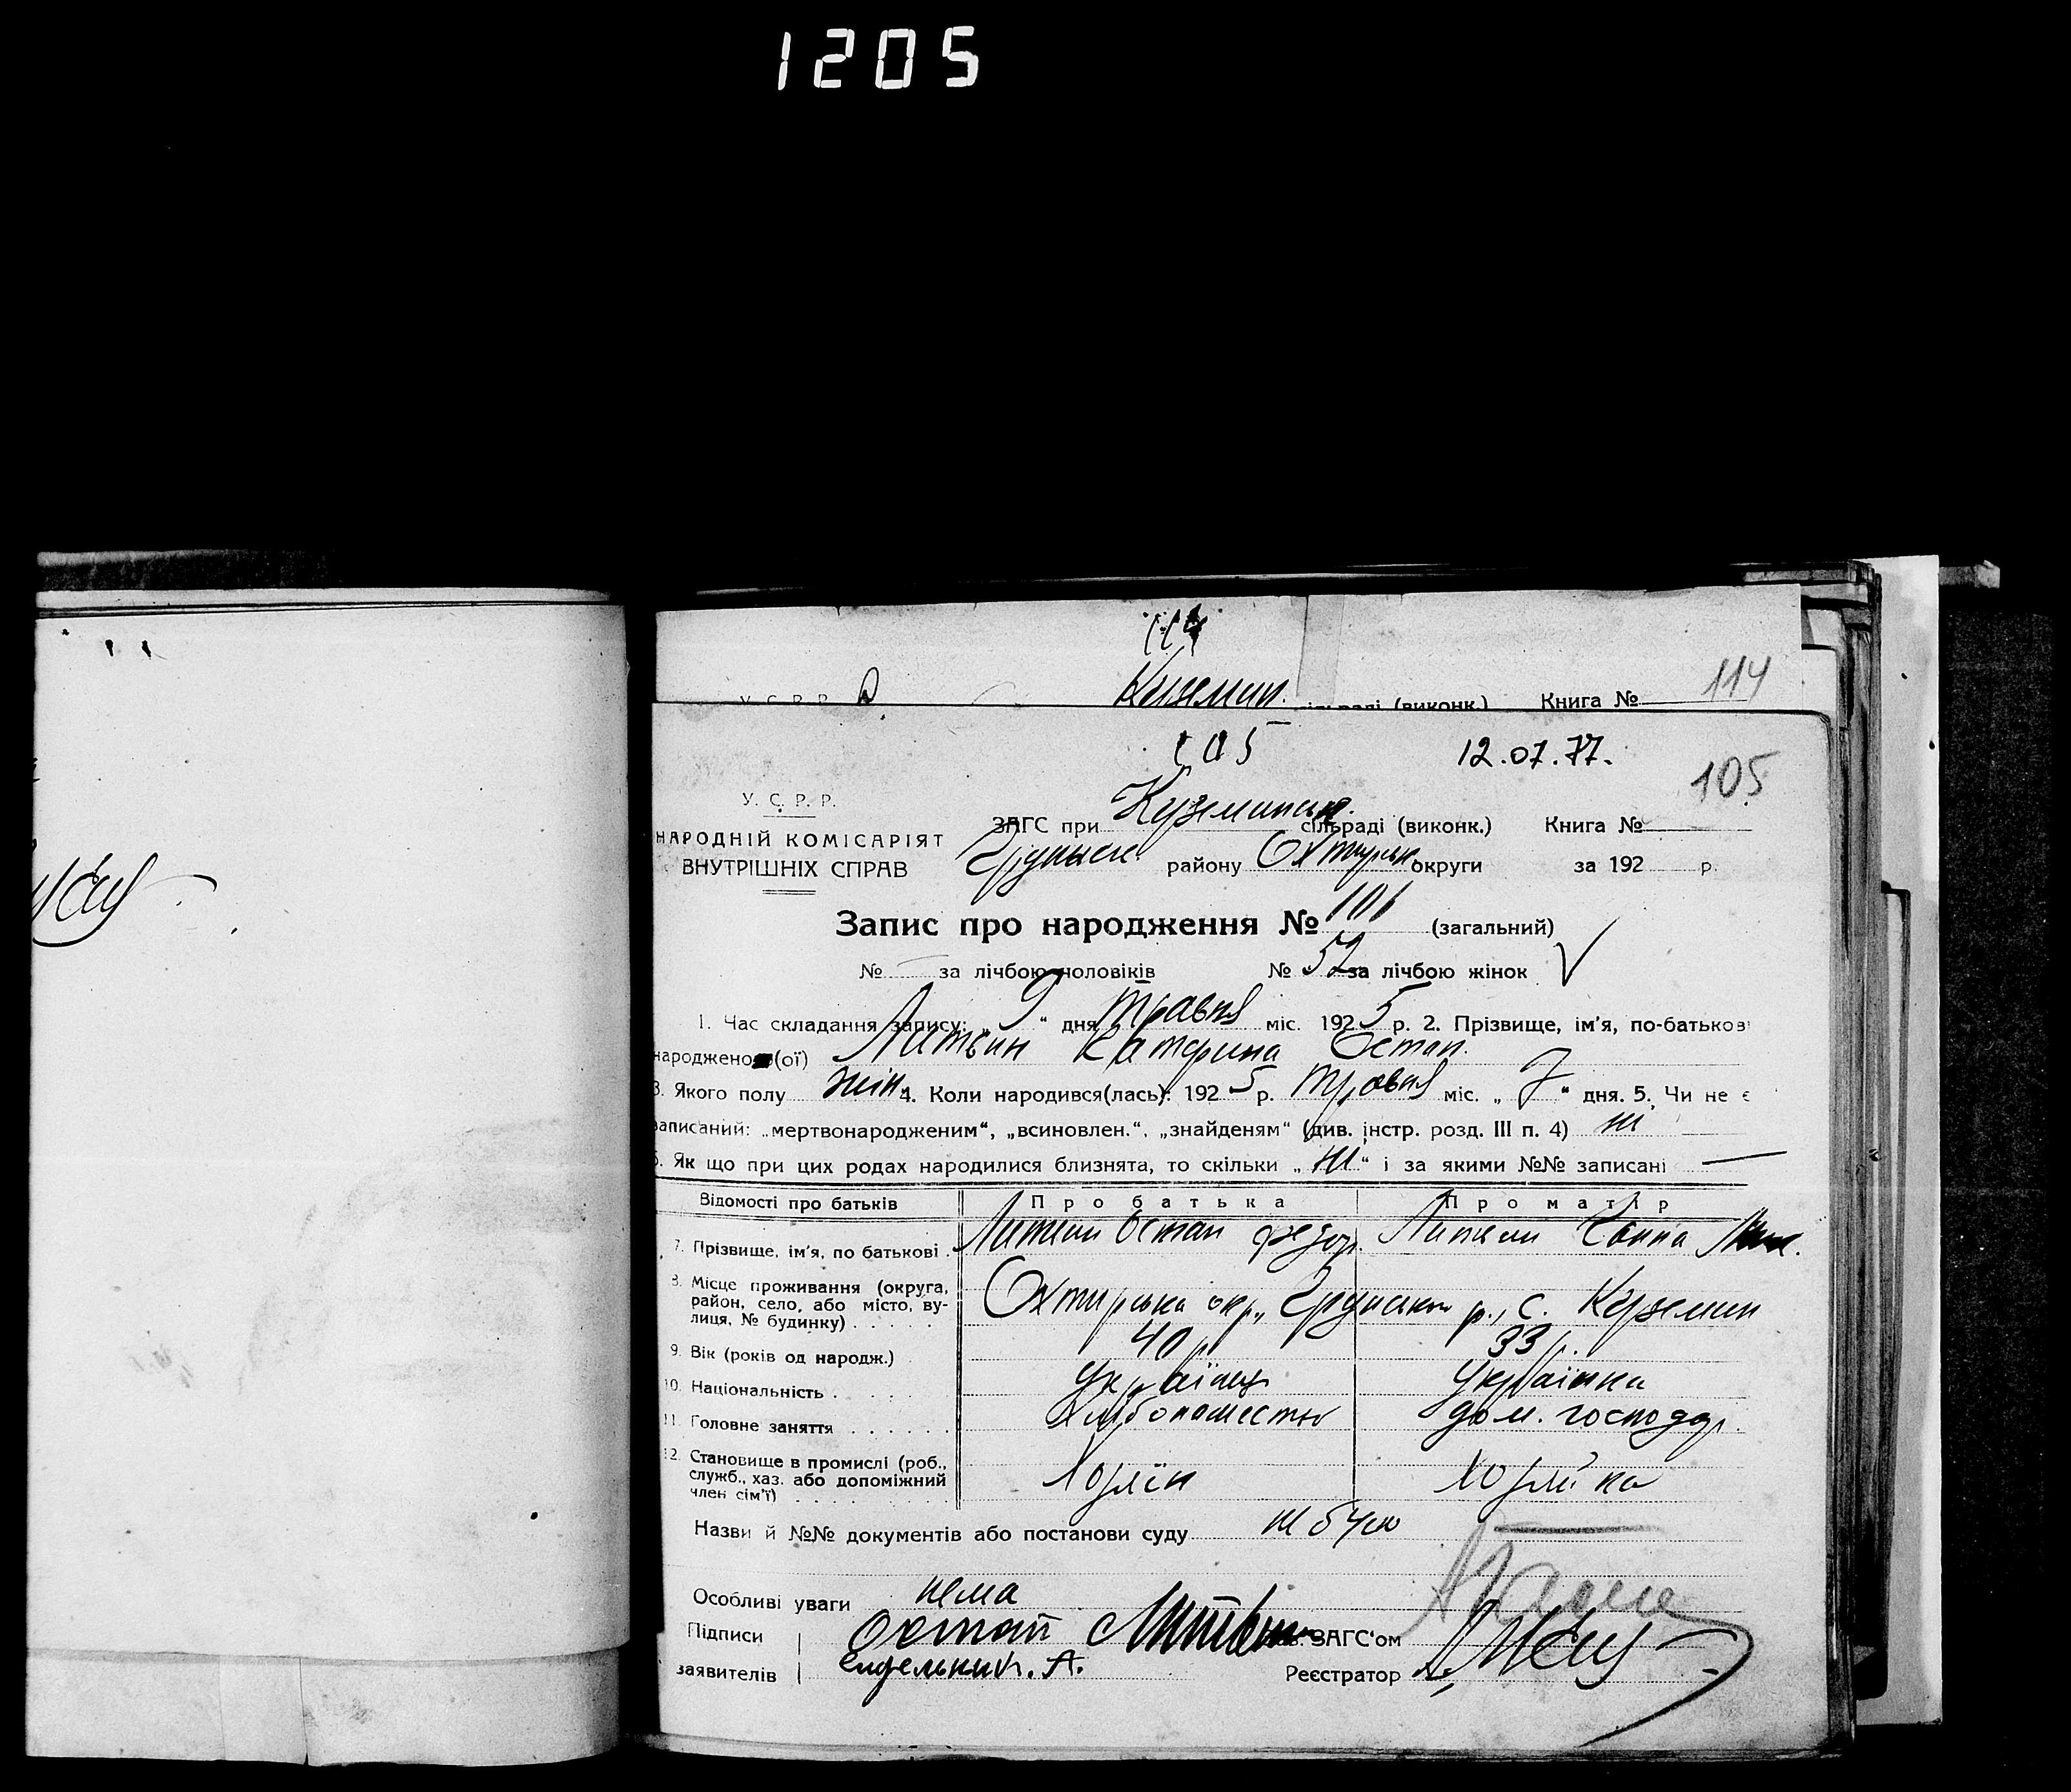 1205
114
Куземин.
У. С. Р. Р.
сільраді (виконк.) Книга № 114
105 12.07.77.
105
У. С. Р. Р.
НАРОДНІЙ КОМІСАРІЯТ
ВНУТРІШНІХ СПРАВ
ЗАГС при Куземинськ. сільраді (виконк.) Книга №
Грунськ. району Охтирськ. округи за 192 р.
Запис про народження № 101 (загальний)
№ — за лічбою чоловіків № 52 за лічбою жінок
1. Час складання запису: „ 9 “ дня травня міс. 1925 р. 2. Прізвище, ім'я, по-батькові
народженого(ої) Литвин Катерина Остап.
3. Якого полу жін. 4. Коли народився(лась): 1925 р. травня міс. „ 7 “ дня. 5. Чи не є
записаний: „мертвонародженим“, „всиновлен.“, „знайденям“ (див. інстр. розд. III п. 4) ні
6. Як що при цих родах народилися близнята, то скільки „ ні “ і за якими №№ записані —
Відомості про батьків Про батька Про матір
7. Прізвище, ім'я, по батькові . Литвин Остап Федор. Литвин Ганна
8. Місце проживання (округа, район, село, або місто, вулиця, № будинку) . . . . . Охтирська окр., Грунськ р., с. Куземин
9. Вік (років од народж.) . 40 р. 33 р.
10. Національність . . . . українець українка
11. Головне заняття . . . . . . хлібопашество дом. господар.
12. Становище в промислі (роб., служб., хаз. або допоміжний член сім'ї) . . . . . . . . .
Назви й №№ документів або постанови суду не було
Особливі уваги нема
Підписи Остап Литвин Зав. ЗАГС'ом
заявителів А. Реєстратор